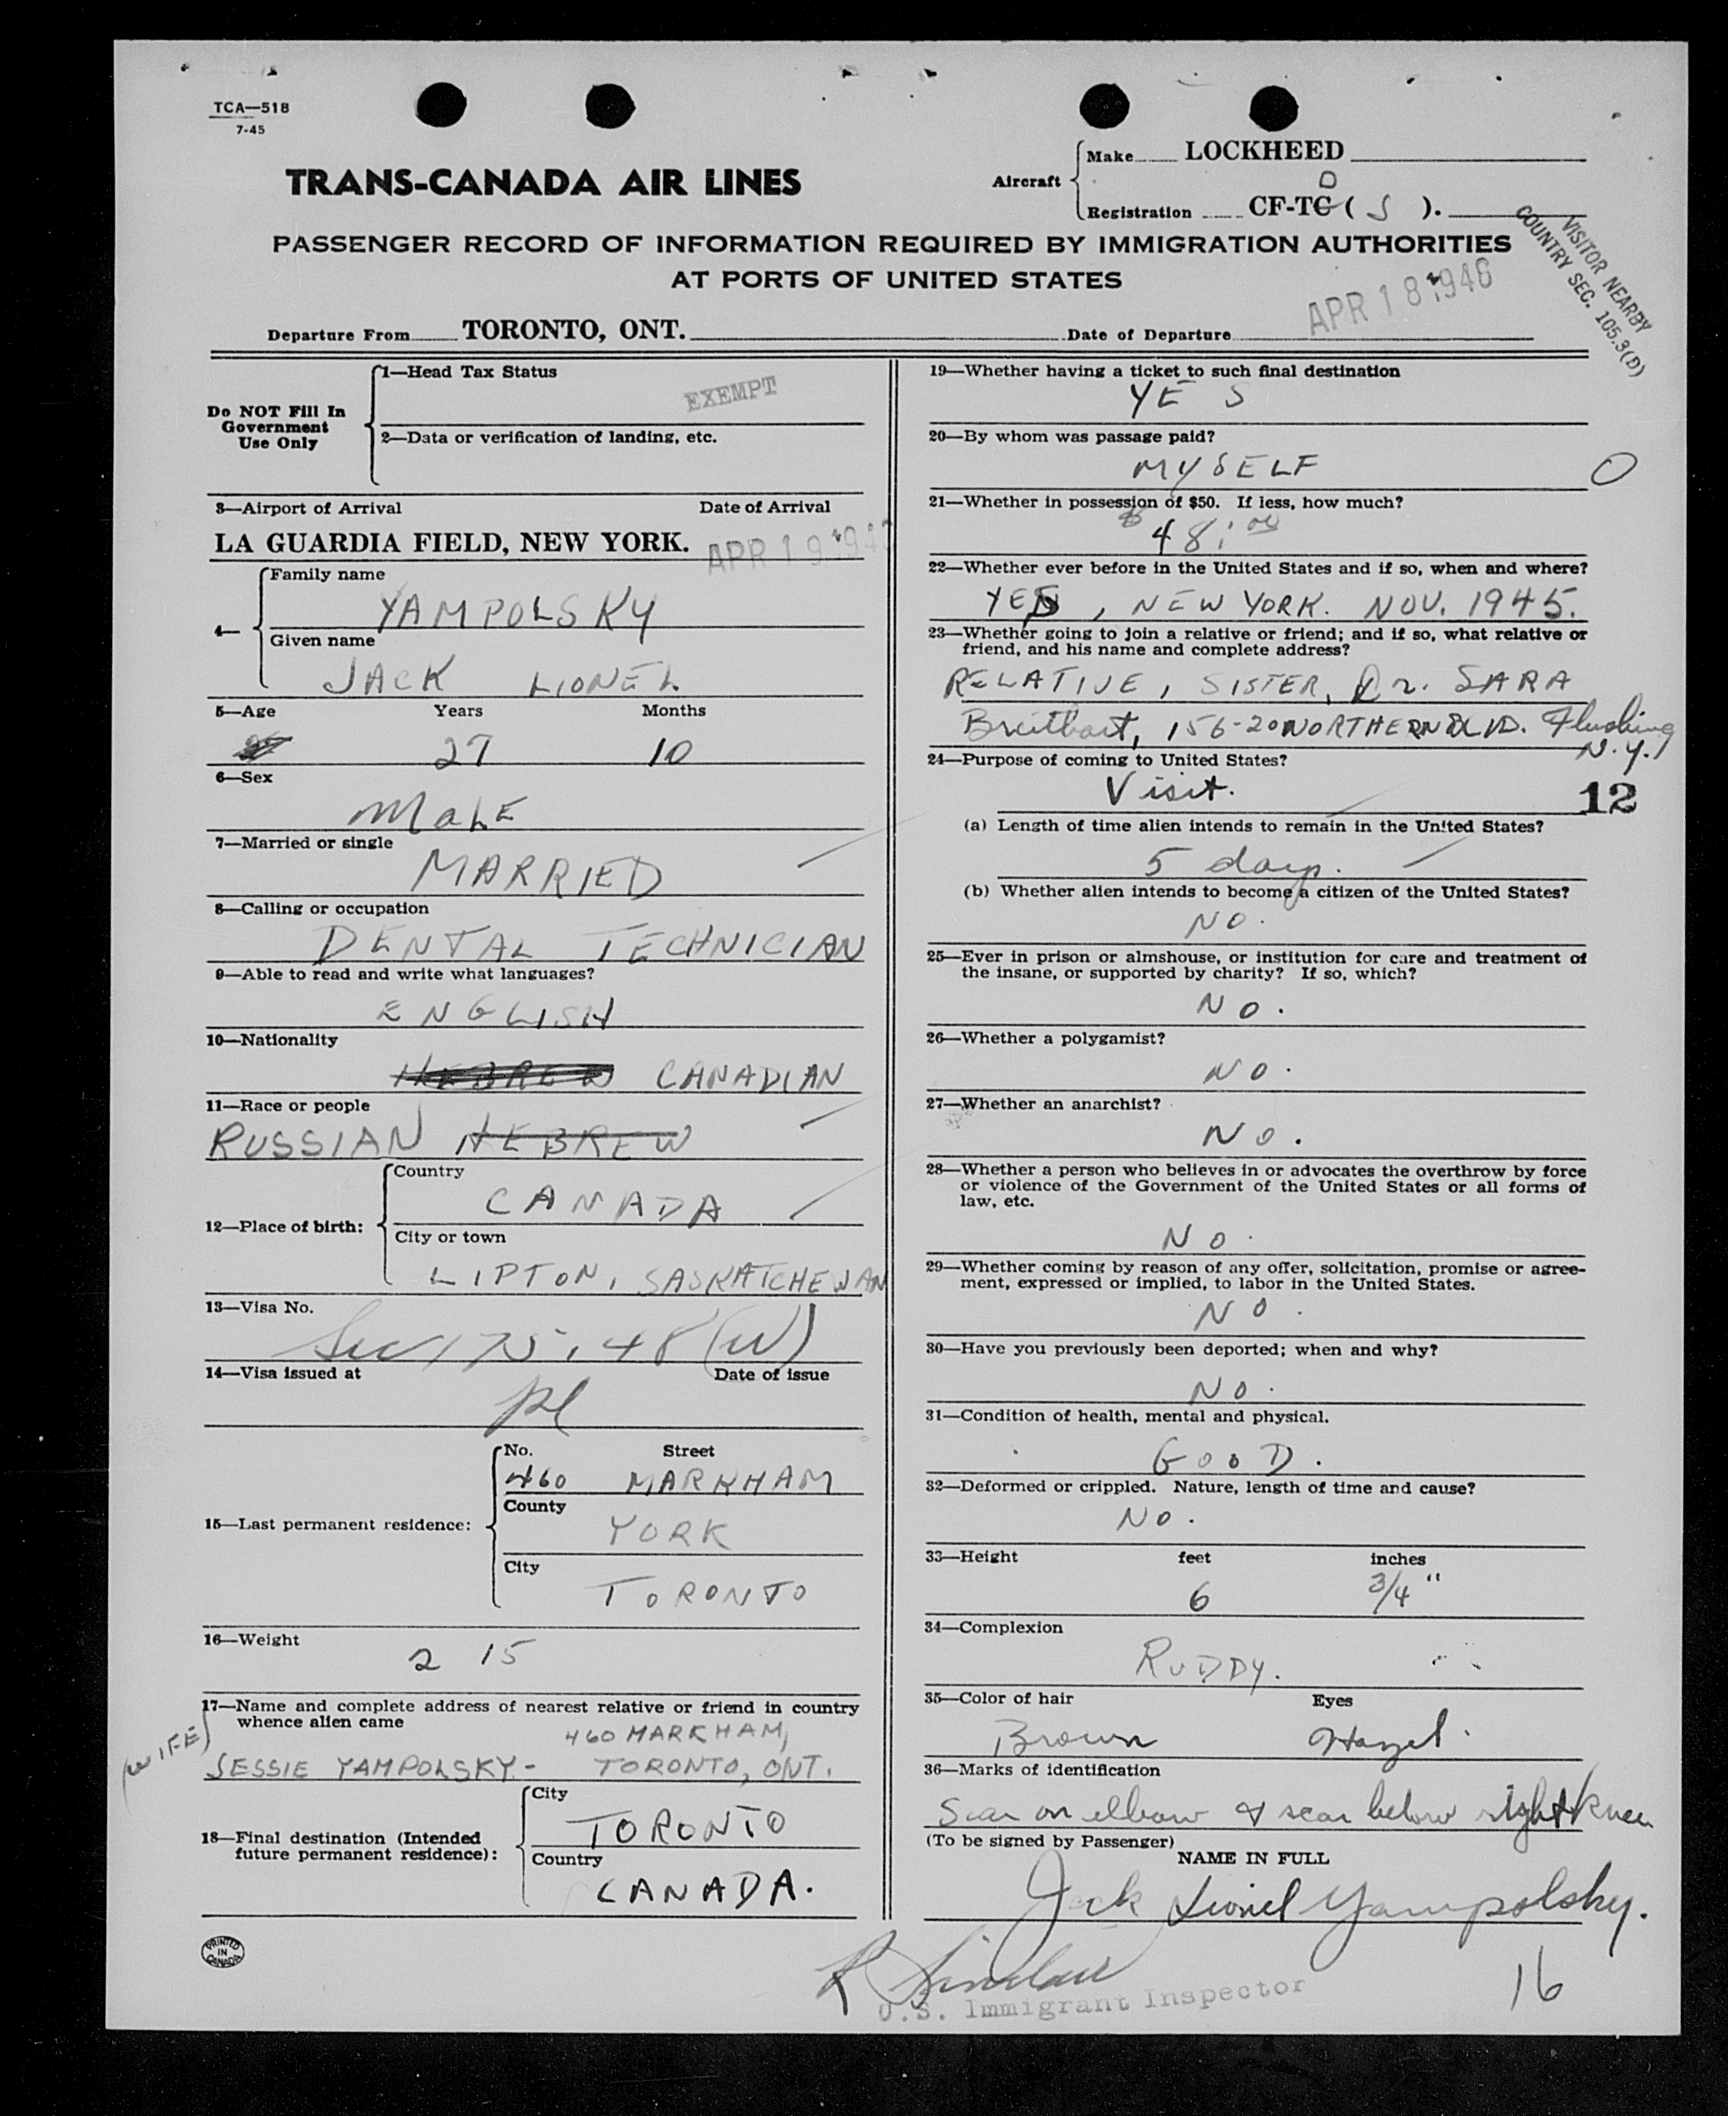 TCA—518
7-45
Aircraft
Make LOCKHEED
Registration CF-TG ( S ).
D
TRANS-CANADA AIR LINES
PASSENGER RECORD OF INFORMATION REQUIRED BY IMMIGRATION AUTHORITIES
AT PORTS OF UNITED STATES
VISITOR NEARBY
COUNTRY SEC. 105.3(D)
Departure From TORONTO, ONT. Date of Departure APR 18 1946
Do NOT Fill In
Government
Use Only
1—Head Tax Status
EXEMPT
2—Data or verification of landing, etc.
3—Airport of Arrival Date of Arrival
LA GUARDIA FIELD, NEW YORK. APR 19 194
4—
Family name
YAMPOLSKY
Given name
JACK LIONEL
5—Age Years Months
27 10
6—Sex
MaLE
7—Married or single
MARRIED
8—Calling or occupation
DENTAL TECHNICIAN
9—Able to read and write what languages?
ENGLISH
10—Nationality
HEBREW CANADIAN
11—Race or people
RUSSIAN HEBREW
12—Place of birth:
Country
CANADA
City or town
LIPTON, SASKATCHEWAN
13—Visa No.
Sec 175.48 (W)
14—Visa issued at Date of issue
15—Last permanent residence:
No. Street
460 MARKHAM
County
YORK
City
TORONTO
16—Weight
2 15
17—Name and complete address of nearest relative or friend in country
whence alien came
460 MARKHAM,
(WIFE)
JESSIE YAMPOLSKY - TORONTO, ONT.
18—Final destination (Intended
future permanent residence):
City
TORONTO
Country
CANADA.
PRINTED
IN
CANADA
19—Whether having a ticket to such final destination
YES
20—By whom was passage paid?
MYSELF
0
21—Whether in possession of $50. If less, how much?
$48.00
22—Whether ever before in the United States and if so, when and where?
YES, NEW YORK. NOV. 1945.
23—Whether going to join a relative or friend; and if so, what relative or
friend, and his name and complete address?
RELATIVE, SISTER, Dr. SARA
Breitbart, 156-20 NORTHERN BLVD. Flushing
N.Y.
24—Purpose of coming to United States?
Visit.
12
(a) Length of time alien intends to remain in the United States?
5 days.
(b) Whether alien intends to become a citizen of the United States?
NO.
25—Ever in prison or almshouse, or institution for care and treatment of
the insane, or supported by charity? If so, which?
NO.
26—Whether a polygamist?
NO.
27—Whether an anarchist?
NO.
28—Whether a person who believes in or advocates the overthrow by force
or violence of the Government of the United States or all forms of
law, etc.
NO.
29—Whether coming by reason of any offer, solicitation, promise or agree-
ment, expressed or implied, to labor in the United States.
NO.
30—Have you previously been deported; when and why?
NO.
31—Condition of health, mental and physical.
GOOD.
32—Deformed or crippled. Nature, length of time and cause?
NO.
33—Height feet inches
6 3/4"
34—Complexion
RUDDY.
35—Color of hair Eyes
Brown Hazel.
36—Marks of identification
Scar on elbow & scar below right knee
(To be signed by Passenger)
NAME IN FULL
Jack Lionel Yampolsky.
R Sinclair
U.S. Immigrant Inspector
16